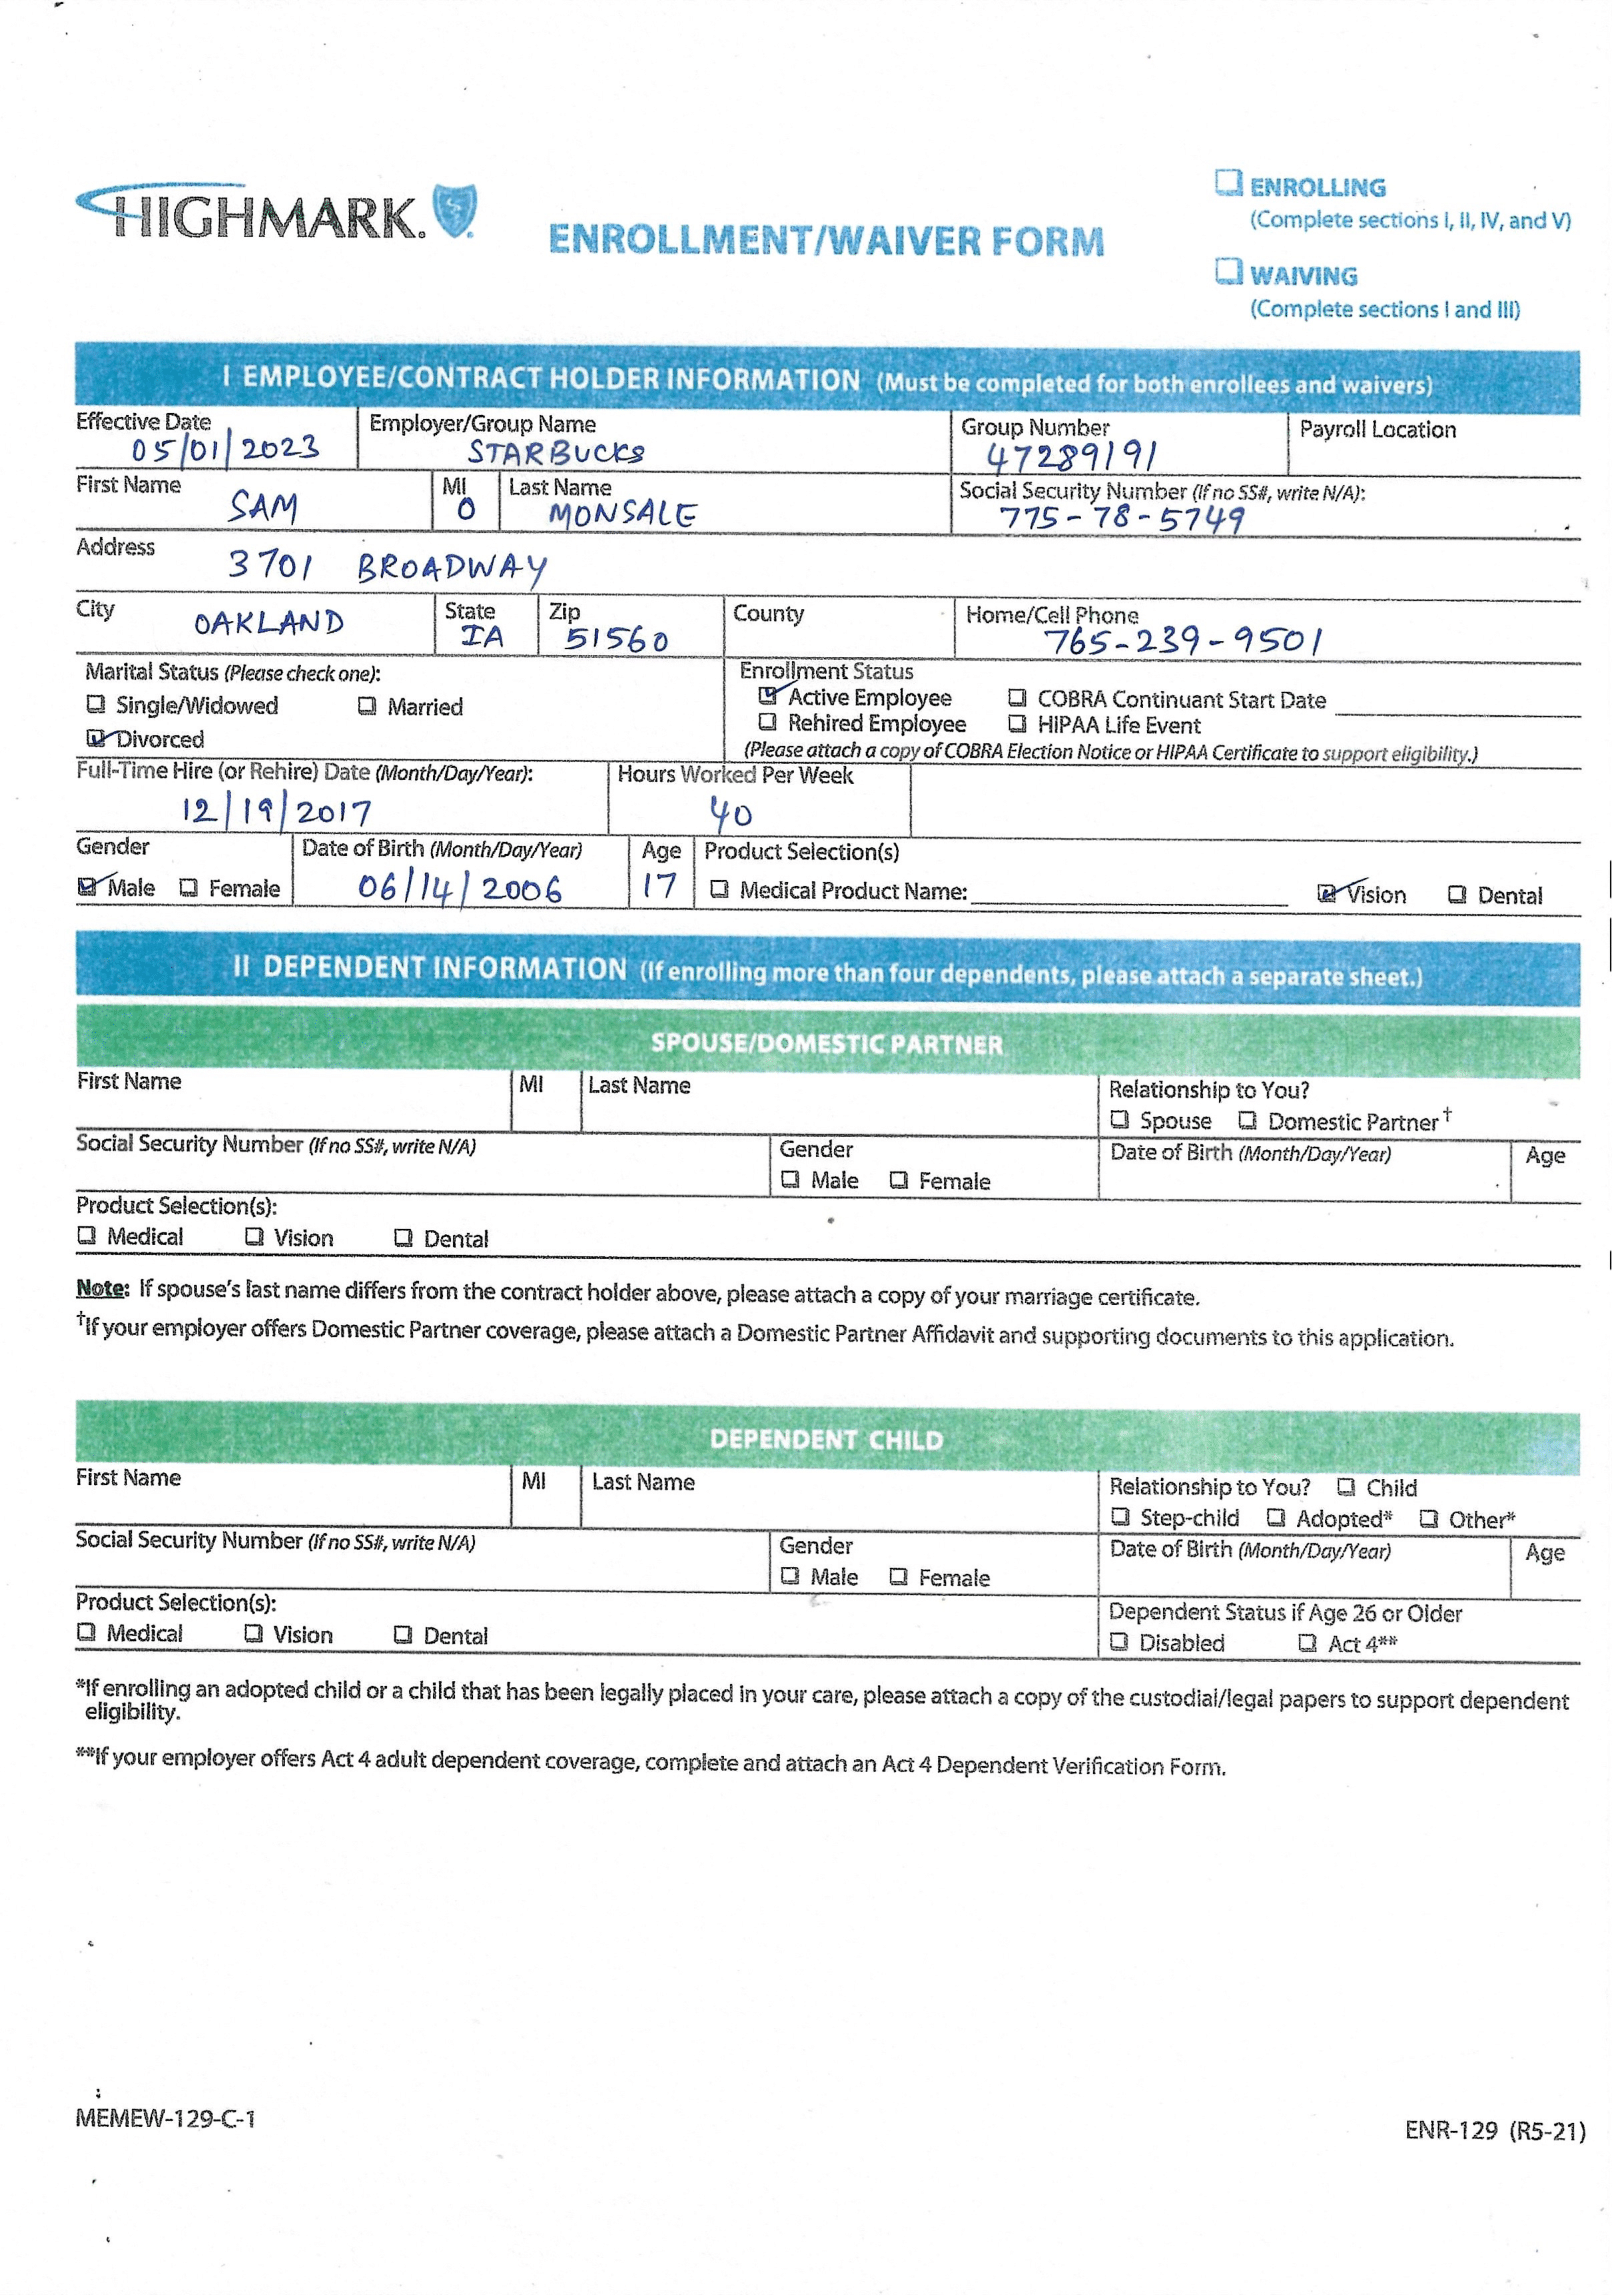 HIGHMARK.
ENROLLMENT/WAIVER FORM
ENROLLING
(Complete sections I, II, IV, and V)
WAIVING
(Complete sections I and III)
I EMPLOYEE/CONTRACT HOLDER INFORMATION (Must be completed for both enrollees and waivers)
Effective Date Employer/Group Name Group Number Payroll Location
05/01/2023 STARBUCKS 47289191
First Name MI Last Name Social Security Number (If no SS#, write N/A):
SAM O MONSALE 775-78-5749
Address
3701 BROADWAY
City State Zip County Home/Cell Phone
OAKLAND IA 51560 765-239-9501
Marital Status (Please check one): Enrollment Status
Single/Widowed Married Active Employee COBRA Continuant Start Date
Divorced Rehired Employee HIPAA Life Event
(Please attach a copy of COBRA Election Notice or HIPAA Certificate to support eligibility.)
Full-Time Hire (or Rehire) Date (Month/Day/Year): Hours Worked Per Week
12/19/2017 40
Gender Date of Birth (Month/Day/Year) Age Product Selection(s)
Male Female 06/14/2006 17 Medical Product Name: Vision Dental
II DEPENDENT INFORMATION (If enrolling more than four dependents, please attach a separate sheet.)
SPOUSE/DOMESTIC PARTNER
First Name MI Last Name Relationship to You?
Spouse Domestic Partner†
Social Security Number (If no SS#, write N/A) Gender Date of Birth (Month/Day/Year) Age
Male Female
Product Selection(s):
Medical Vision Dental
Note: If spouse's last name differs from the contract holder above, please attach a copy of your marriage certificate.
†If your employer offers Domestic Partner coverage, please attach a Domestic Partner Affidavit and supporting documents to this application.
DEPENDENT CHILD
First Name MI Last Name Relationship to You? Child
Step-child Adopted* Other*
Social Security Number (If no SS#, write N/A) Gender Date of Birth (Month/Day/Year) Age
Male Female
Product Selection(s): Dependent Status if Age 26 or Older
Medical Vision Dental Disabled Act 4**
*If enrolling an adopted child or a child that has been legally placed in your care, please attach a copy of the custodial/legal papers to support dependent
eligibility.
**If your employer offers Act 4 adult dependent coverage, complete and attach an Act 4 Dependent Verification Form.
MEMEW-129-C-1
ENR-129 (R5-21)